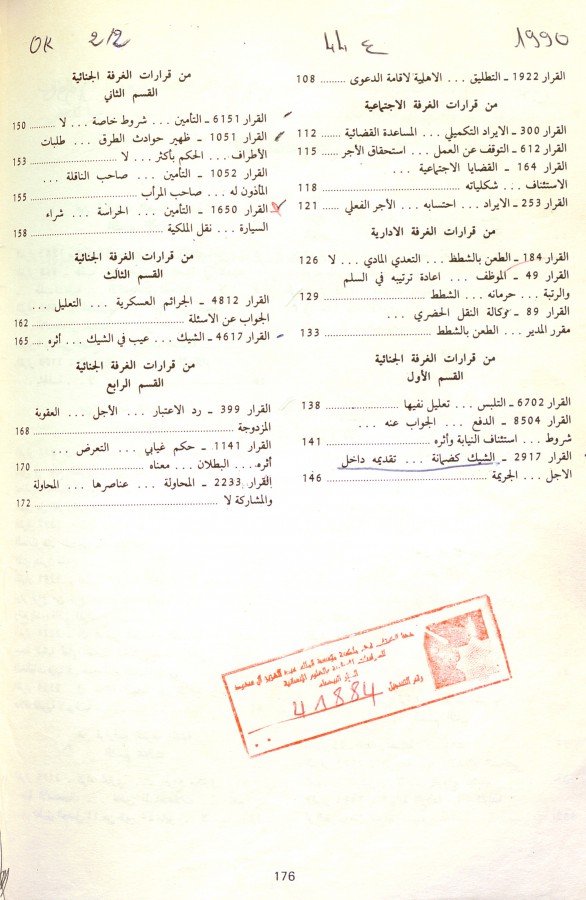 1990
44 ع
2/2 OK
القرار 1922 ـ التطليق ... الاهلية لاقامة الدعوى ........ 108
من قرارات الغرفة الاجتماعية
القرار 300 ـ الايراد التكميلي ... المساعدة القضائية ... 112
القرار 612 ـ التوقف عن العمل ... استحقاق الأجر ... 115
القرار 164 ـ القضايا الاجتماعية ...
الاستئناف ... شكلياته ........ 118
القرار 253 ـ الايراد ... احتسابه ... الأجر الفعلي ... 121
من قرارات الغرفة الادارية
القرار 184 ـ الطعن بالشطط ... التعدي المادي ... لا 126
القرار 49 ـ الموظف ... اعادة ترتيبه في السلم
والرتبة ... حرمانه ... الشطط ........ 129
القرار 89 ـ وكالة النقل الحضري ...
مقرر المدير ... الطعن بالشطط ........ 133
من قرارات الغرفة الجنائية
القسم الأول
القرار 6702 ـ التلبس ... تعليل نفيها ........ 138
القرار 8504 ـ الدفع ... الجواب عنه ...
شروط ... استئناف النيابة وأثره ........ 141
القرار 2917 ـ الشيك كضمانة ... تقديمه داخل
الاجل ... الجريمة ........ 146
من قرارات الغرفة الجنائية
القسم الثاني
القرار 6151 ـ التأمين ... شروط خاصة ... لا ........ 150
القرار 1051 ـ ظهير حوادث الطرق ... طلبات
الأطراف ... الحكم بأكثر ... لا ........ 153
القرار 1052 ـ التأمين ... صاحب الناقلة ...
المأذون له ... صاحب المرأب ........ 155
القرار 1650 ـ التأمين ... الحراسة ... شراء
السيارة .. نقل الملكية ........ 158
من قرارات الغرفة الجنائية
القسم الثالث
القرار 4812 ـ الجرائم العسكرية ... التعليل ...
الجواب عن الاسئلة ........ 162
القرار 4617 ـ الشيك ... عيب في الشيك ... أثره ... 165
من قرارات الغرفة الجنائية
القسم الرابع
القرار 399 ـ رد الاعتبار ... الأجل ... العقوبة
المزدوجة ........ 168
القرار 1141 ـ حكم غيابي ... التعرض ...
أثره ... البطلان ... معناه ........ 170
القرار 2233 ـ المحاولة ... عناصرها ... المحاولة
والمشاركة لا ........ 172
الدار البيضاء
رقم التسجيل 41884
176